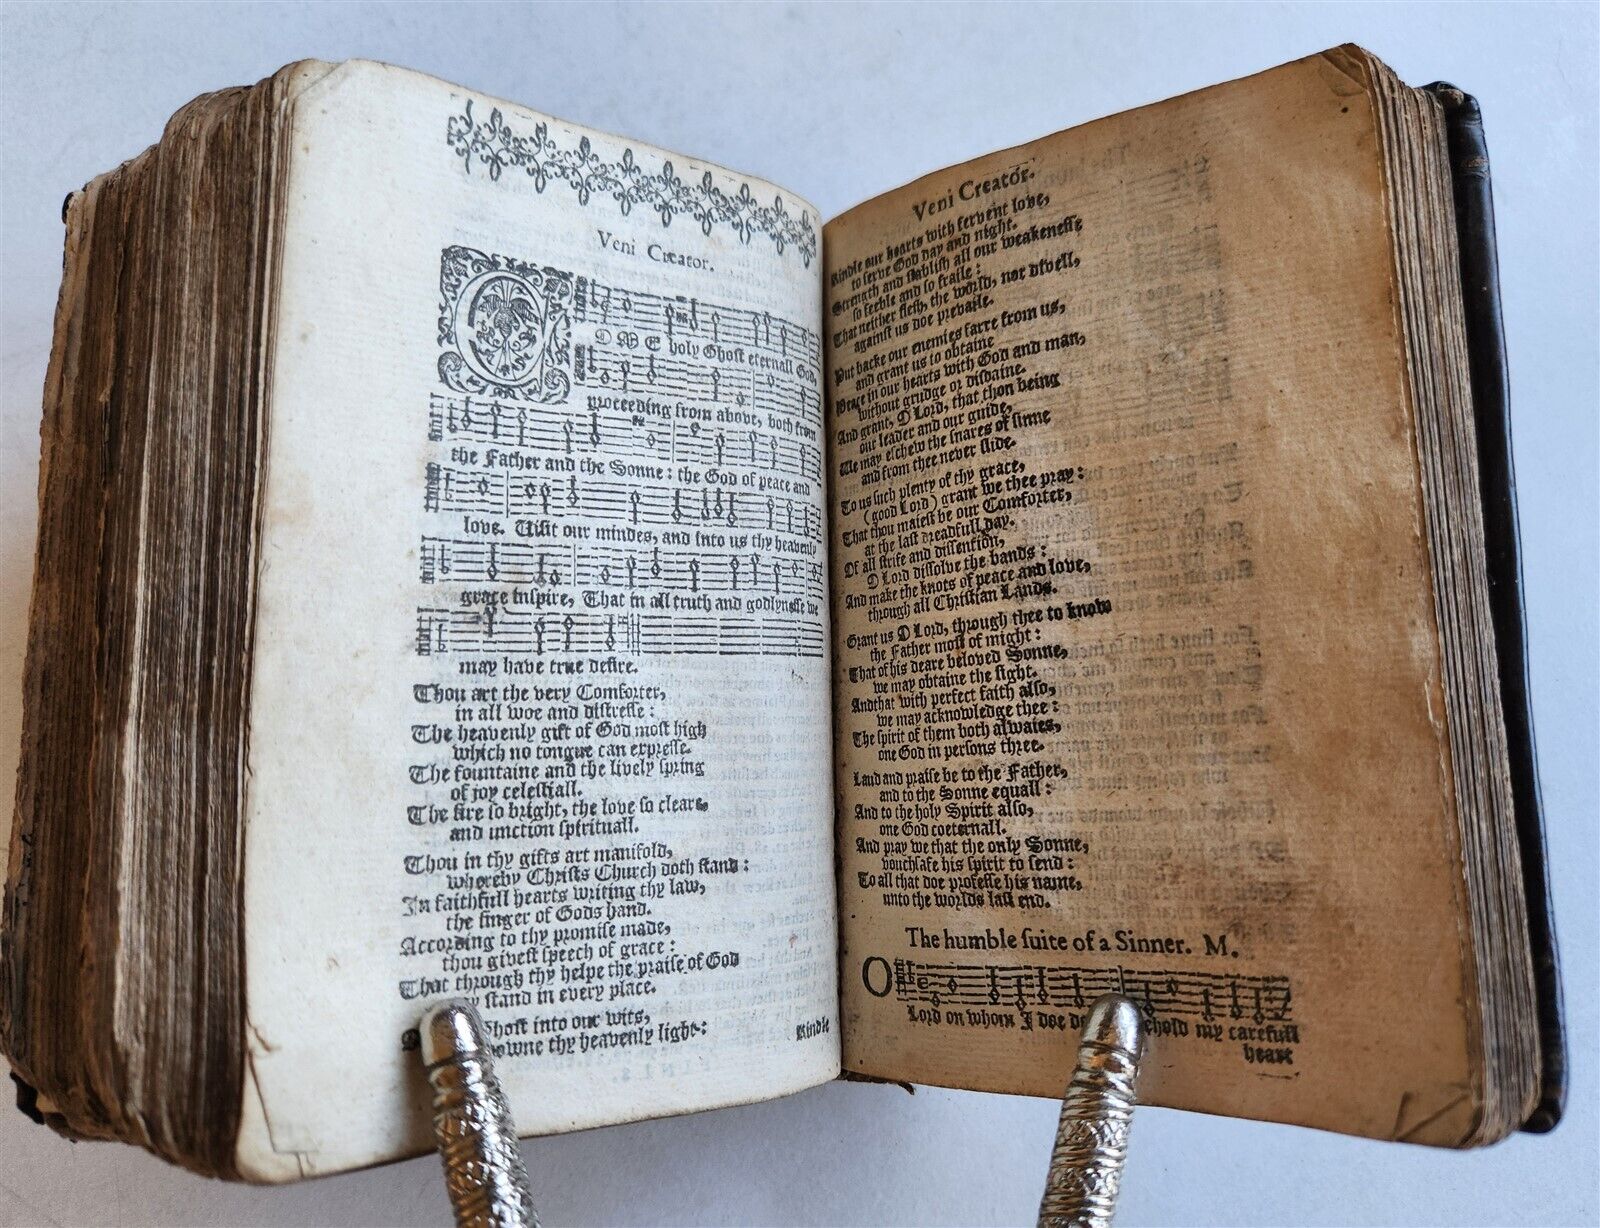 Veni Creator.
COME holy Ghost eternall God,
proceeding from above, both from
the Father and the Sonne: the God of peace and
love. Visit our mindes, and into us thy heavenly
grace inspire, That in all truth and godlynesse we
may have true desire.
Thou art the very Comforter,
in all woe and distresse:
The heavenly gift of God most high
which no tongue can expresse.
The fountaine and the lively spring
of joy celestiall.
The fire so bright, the love so cleare,
and unction spirituall.
Thou in thy gifts art manifold,
whereby Christs Church doth stand:
In faithfull hearts writing thy law,
the finger of Gods hand.
According to thy promise made,
thou givest speech of grace:
That through thy helpe the praise of God
stand in every place.
Ghost into our wits,
downe thy heavenly light:
Kindle
Veni Creator.
Kindle our hearts with fervent love,
to serve God day and night.
Strength and stablish all our weakenesse
so feeble and so fraile:
That neither flesh, the world, nor divell,
against us doe prevaile.
Put backe our enemies farre from us,
and grant us to obtaine
Peace in our hearts with God and man,
without grudge or disdaine.
And grant, O Lord, that thou being
our leader and our guide,
We may eschew the snares of sinne
and from thee never slide.
To us such plenty of thy grace,
(good Lord) grant we thee pray:
That thou maiest be our Comforter,
at the last dreadfull day.
Of all strife and dissention,
O Lord dissolve the bands:
And make the knots of peace and love,
through all Christian Lands.
Grant us O Lord, through thee to know
the Father most of might:
That of his deare beloved Sonne,
we may obtaine the sight.
Andthat with perfect faith also,
we may acknowledge thee:
The spirit of them both alwaies,
one God in persons three.
Laud and praise be to the Father,
and to the Sonne equall:
And to the holy Spirit also,
one God coeternall.
And pray we that the only Sonne,
vouchsafe his spirit to send:
To all that doe professe his name,
unto the worlds last end.
The humble suite of a Sinner. M.
O
Lord on whom I doe my carefull
heart